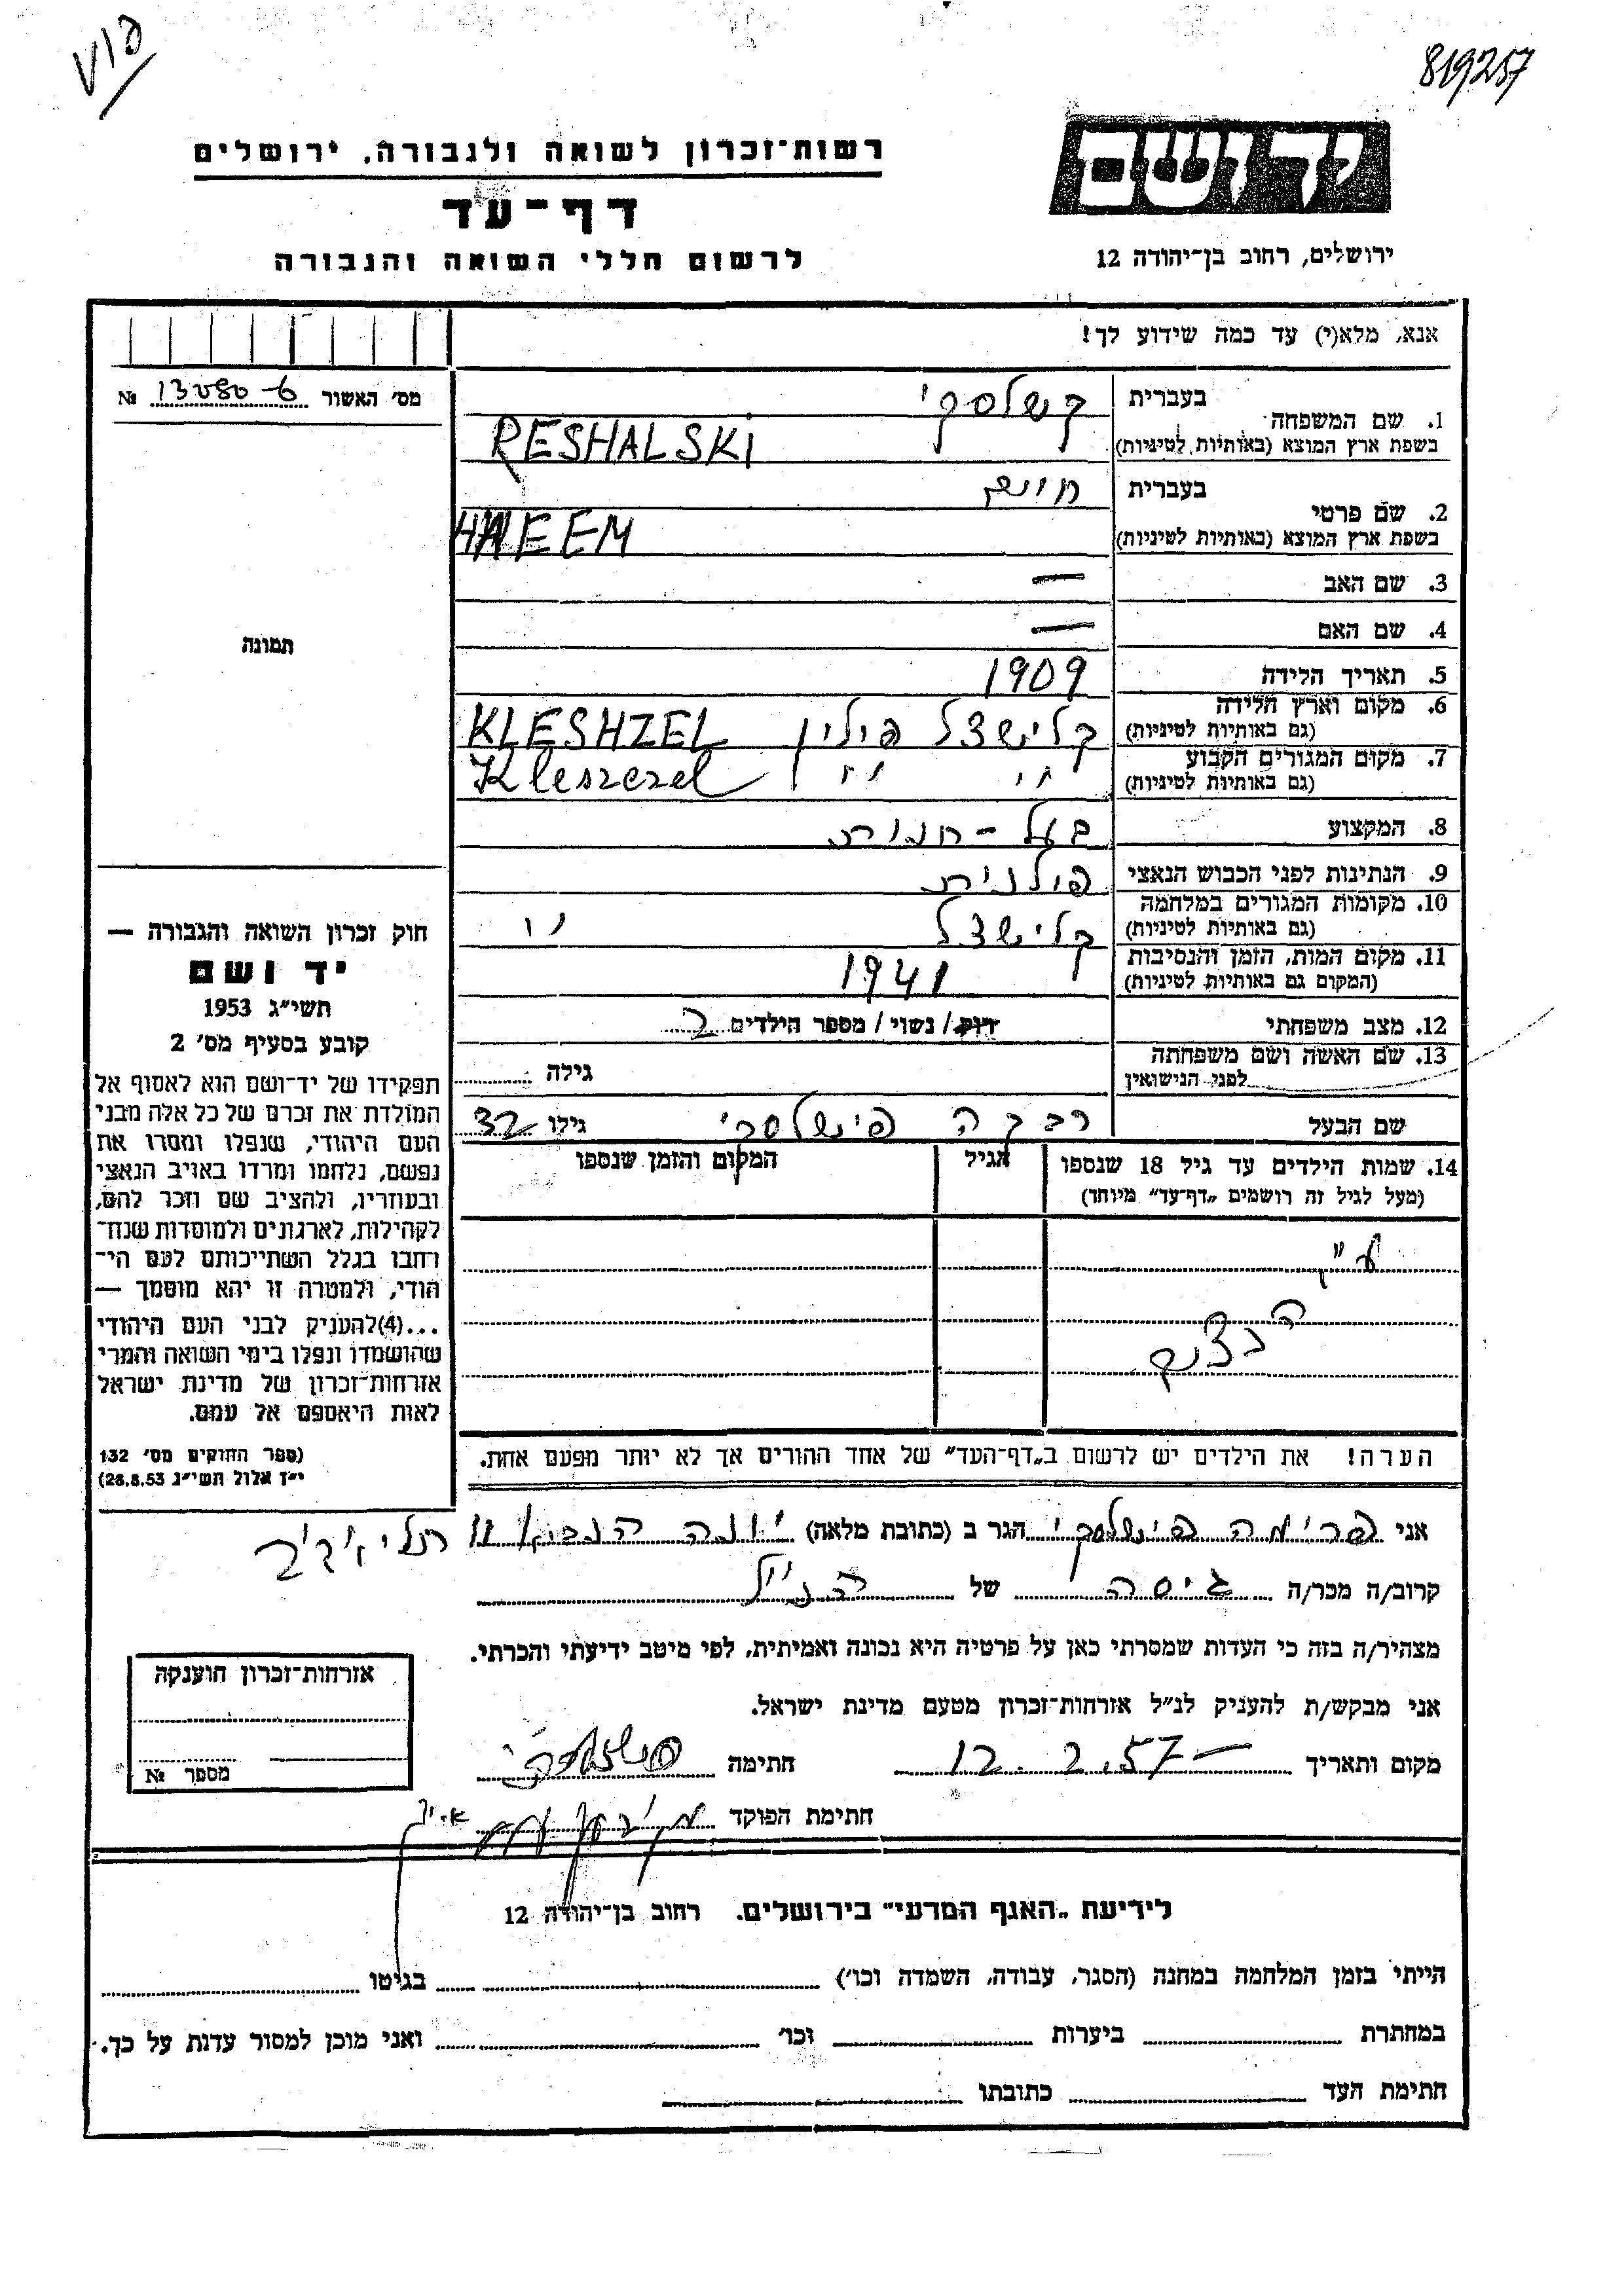 819257
רשות־זכרון לשואה ולגבורה, ירושלים
יד ושם
דף־עד
לרשום חללי השואה והגבורה
ירושלים, רחוב בן־יהודה 12
אנא, מלא(י) עד כמה שידוע לך!
מס׳ האשור № 13080-6
1. שם המשפחה בעברית קשלסקי
בשפת ארץ המוצא (באותיות לטיניות) RESHALSKI
2. שם פרטי בעברית חיים
בשפת ארץ המוצא (באותיות לטיניות) HAEEM
3. שם האב —
4. שם האם —
תמונה
5. תאריך הלידה 1909
6. מקום וארץ הלידה (גם באותיות לטיניות) קלישצל פולין KLESHZEL
7. מקום המגורים הקבוע (גם באותיות לטיניות) " " Kleszezel
8. המקצוע בעל-חנות
9. הנתינות לפני הכבוש הנאצי פולנית
10. מקומות המגורים במלחמה (גם באותיות לטיניות) קלישצל "
11. מקום המות, הזמן והנסיבות (המקום גם באותיות לטיניות) 1941
12. מצב משפחתי רוק/ נשוי/ מספר הילדים 2
13. שם האשה ושם משפחתה לפני הנישואין גילה
שם הבעל רבקה פישלסקי גילו 32
14. שמות הילדים עד גיל 18 שנספו הגיל המקום והזמן שנספו
(מעל לגיל זה רושמים „דף־עד" מיוחד)
חוק זכרון השואה והגבורה —
יד ושם
תשי״ג 1953
קובע בסעיף מס׳ 2
תפקידו של יד־ושם הוא לאסוף אל
המולדת את זכרם של כל אלה מבני
העם היהודי, שנפלו ומסרו את
נפשם, נלחמו ומרדו באויב הנאצי
ובעוזריו, ולהציב שם וזכר להם,
לקהילות, לארגונים ולמוסדות שנח־
רחבו בגלל השתייכותם לעם הי־
הודי, ולמטרה זו יהא מוסמך —
...(4)להעניק לבני העם היהודי
שהושמדו ונפלו בימי השואה והמרי
אזרחות־זכרון של מדינת ישראל
לאות היאספם אל עמם.
(ספר החוקים מס׳ 132
י״ז אלול תשי״ג 28.8.53)
הערה! את הילדים יש לרשום ב„דף־העד" של אחד ההורים אך לא יותר מפעם אחת.
אני פרימה פישלסקי הגר ב (כתובת מלאה) יונה הנביא 11 תל־אביב
קרוב/ה מכר/ה גיסה של הנ״ל
מצהיר/ה בזה כי העדות שמסרתי כאן על פרטיה היא נכונה ואמיתית, לפי מיטב ידיעתי והכרתי.
אני מבקש/ת להעניק לנ״ל אזרחות־זכרון מטעם מדינת ישראל.
מקום ותאריך 12.2.57 חתימה
חתימת הפוקד
אזרחות־זכרון הוענקה
מספר №
לידיעת „האגף המדעי" בירושלים. רחוב בן־יהודה 12
הייתי בזמן המלחמה במחנה (הסגר, עבודה, השמדה וכו׳) בגיטו
במחתרת ביערות וכו׳ ואני מוכן למסור עדות על כך.
חתימת העד כתובתו